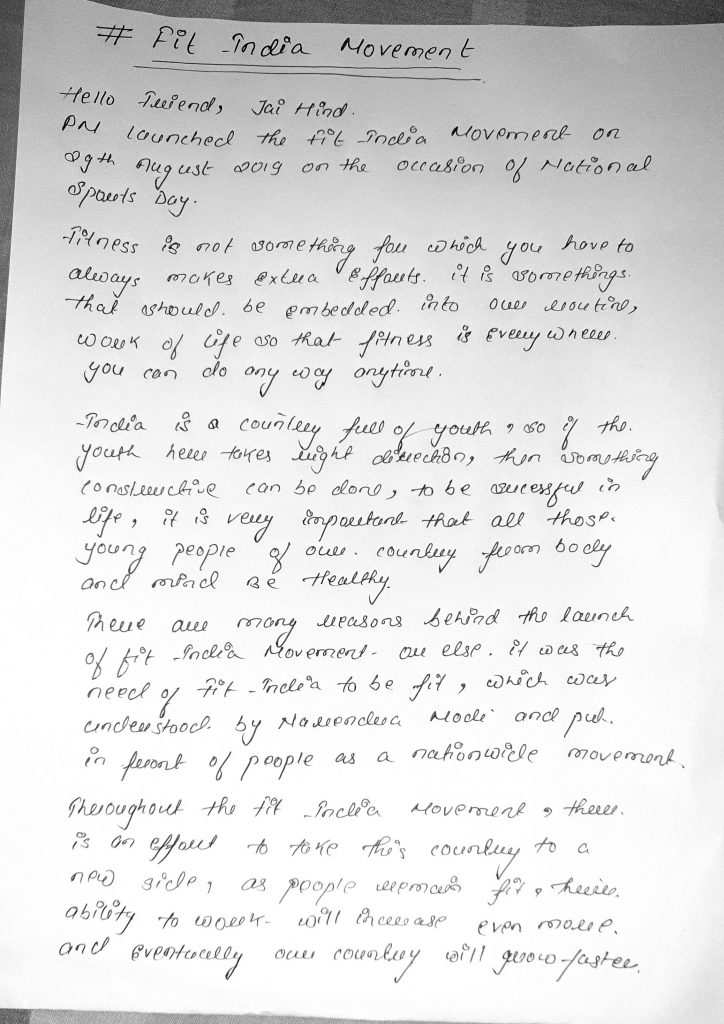 # Fit India Movement
Hello Friend, Jai Hind.
PM launched the fit India Movement on
29th August 2019 on the occasion of National
Sports Day.
Fitness is not something for which you have to
always makes extra effarts. it is somethings.
that should. be embedded. into our routine,
work of life so that fitness is every where.
you can do any way anytime.
India is a country full of youth, so if the.
youth here takes right direction, then something
constructive can be done, to be sucessful in
life, it is very important that all those.
young people of our. country from body
and mind Be Healthy.
There are many reasons behind the launch
of fit India Movement- or else. it was the
need of Fit India to be fit, which was
understood. by Narendra Modi and put.
in front of people as a nationwide movement.
Throughout the fit India Movement, there.
is an effort to take this country to a
new side, as people remain fit, their.
ability to work- will increase even more.
and eventually our country will grow faster.